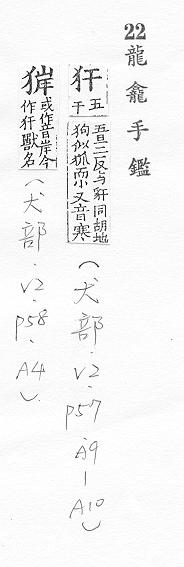 22 龍龕手鑑
犴
五
干
五旦二反与豻同胡地
狗似狐而小又音寒
(犬部.V2.p57.A9-A10)
或作音岸今
作犴獸名
(犬部.V2.p58.A4)